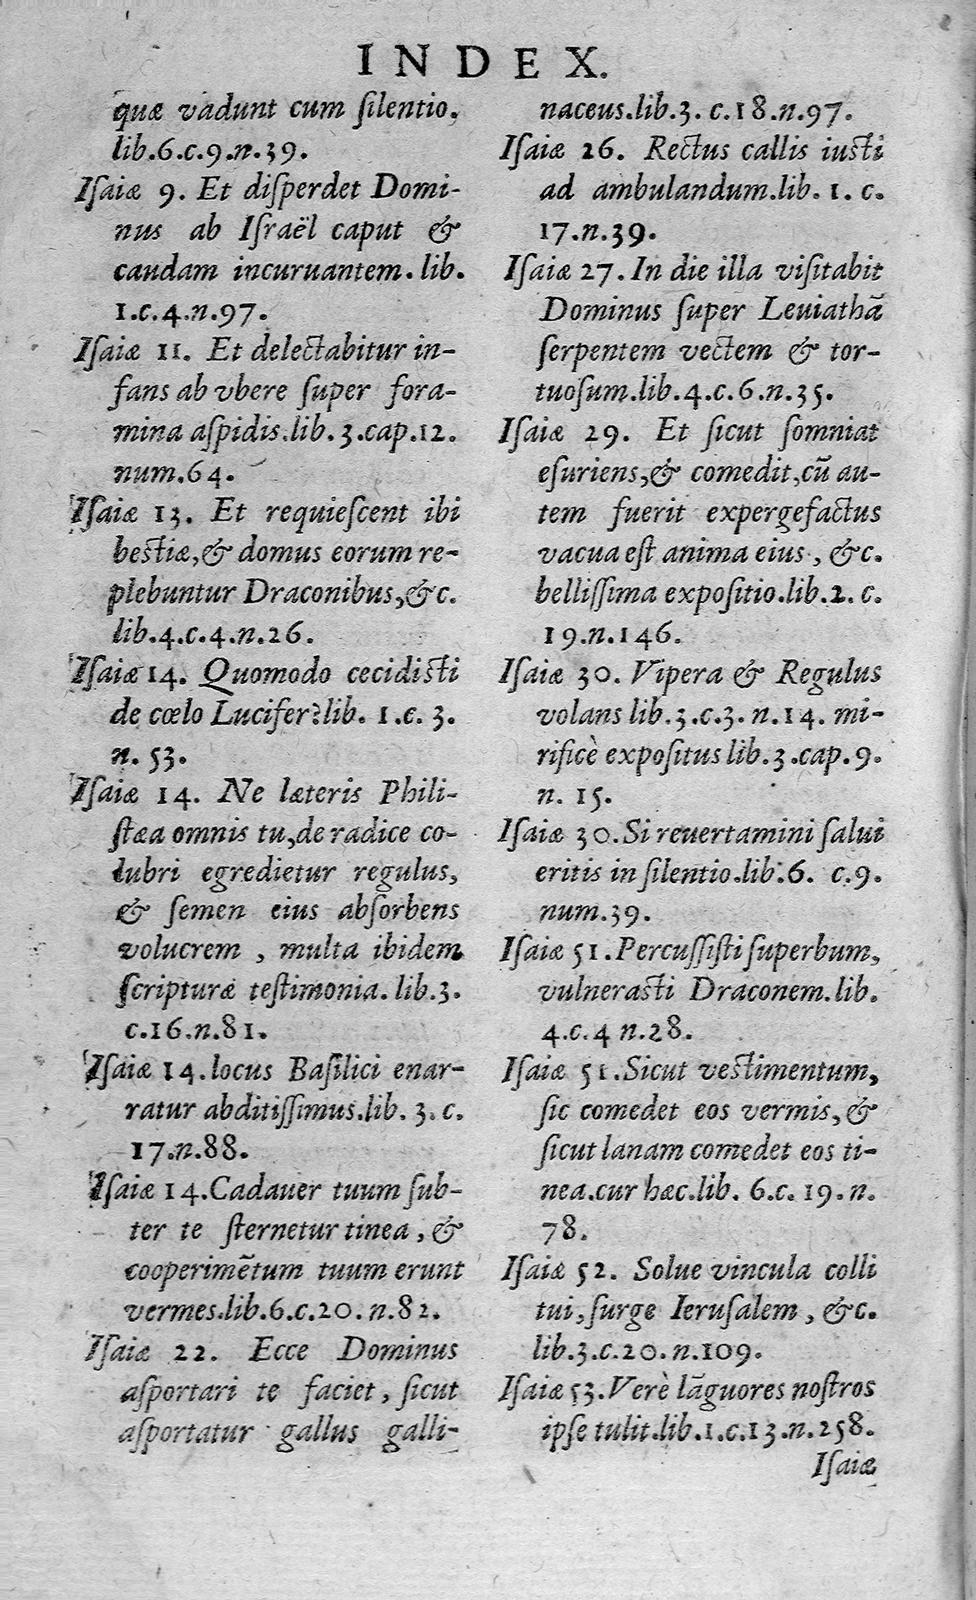 INDEX.
quæ vadunt cum ſilentio.
lib.6.c.9.n.39.
Iſaiæ 9. Et diſperdet Domi-
nus ab Iſraël caput &
caudam incuruantem. lib.
1.c.4.n.97.
Iſaiæ 11. Et delectabitur in-
fans ab vbere ſuper fora-
mina aſpidis.lib.3.cap.12.
num.64.
Iſaiæ 13. Et requieſcent ibi
beſtiæ,& domus eorum re-
plebuntur Draconibus,&c.
lib.4.c.4.n.26.
Iſaiæ 14. Quomodo cecidiſti
de cœlo Lucifer?lib. 1.c. 3.
n. 53.
Iſaiæ 14. Ne læteris Phili-
ſtæa omnis tu,de radice co-
lubri egredietur regulus,
& ſemen eius abſorbens
volucrem , multa ibidem
ſcripturæ teſtimonia. lib.3.
c.16.n.81.
Iſaiæ 14.locus Baſilici enar-
ratur abditiſſimus.lib. 3.c.
17.n.88.
Iſaiæ 14.Cadauer tuum ſub-
ter te ſternetur tinea, &
cooperimẽtum tuum erunt
vermes.lib.6.c.20.n.82.
Iſaiæ 22. Ecce Dominus
aſportari te faciet, ſicut
aſportatur gallus galli-
naceus.lib.3. c.18.n.97.
Iſaiæ 26. Rectus callis iuſti
ad ambulandum.lib. 1. c.
17.n.39.
Iſaiæ 27. In die illa viſitabit
Dominus ſuper Leuiathã
ſerpentem vectem & tor-
tuoſum.lib.4.c.6.n.35.
Iſaiæ 29. Et ſicut ſomniat
eſuriens,& comedit,cũ au-
tem fuerit expergefactus
vacua eſt anima eius, &c.
belliſſima expoſitio.lib.2. c.
19.n.146.
Iſaiæ 30. Vipera & Regulus
volans lib.3.c.3. n.14. mi-
rificè expoſitus lib.3.cap.9.
n. 15.
Iſaiæ 30. Si reuertamini ſalui
eritis in ſilentio.lib.6. c.9.
num.39.
Iſaiæ 51. Percuſſiſti ſuperbum,
vulneraſti Draconem.lib.
4.c.4 n.28.
Iſaiæ 51. Sicut veſtimentum,
ſic comedet eos vermis,&
ſicut lanam comedet eos ti-
nea.cur hæc.lib. 6.c. 19. n.
78.
Iſaiæ 52. Solue vincula colli
tui, ſurge Ieruſalem, &c.
lib.3.c.20.n.109.
Iſaiæ 53. Verè lãguores noſtros
ipſe tulit.lib.1.c.13.n.258.
Iſaiæ